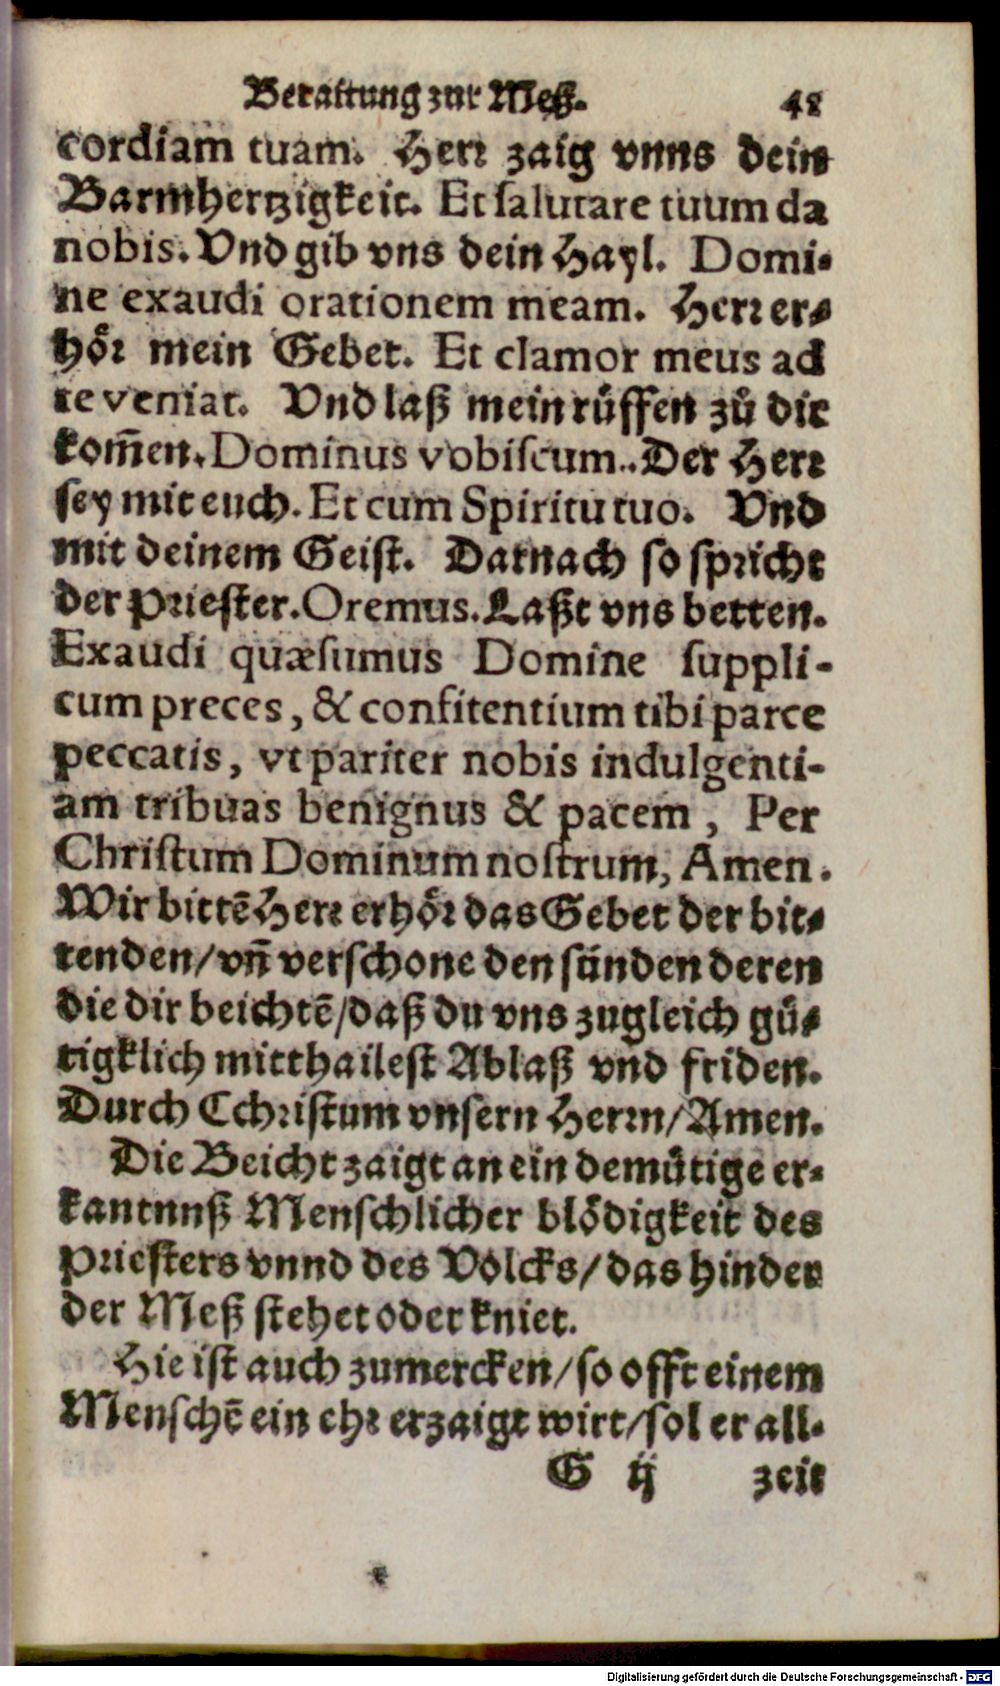 Beraittung zur Meß. 48
cordiam tuam. Herr zaig vnns dein
Barmhertzigkeit. Et salutare tuum da
nobis. Vnd gib vns dein Hayl. Domi-
ne exaudi orationem meam. Herr er-
hör mein Gebet. Et clamor meus ad
te veniat. Vnd laß mein rüffen zů dir
kom̃en. Dominus vobiscum.. Der Herr
sey mit euch. Et cum Spiritu tuo. Vnd
mit deinem Geist. Darnach so spricht
der Priester. Oremus. Laßt vns betten.
Exaudi quæsumus Domine suppli-
cum preces, & confitentium tibi parce
peccatis, vt pariter nobis indulgenti-
am tribuas benignus & pacem, Per
Christum Dominum nostrum, Amen.
Wir bittẽ Herr erhör das Gebet der bit-
tenden/ vñ verschone den sünden deren
die dir beichtẽ/ daß du vns zugleich gü-
tigklich mitthailest Ablaß vnd friden.
Durch Cchristum vnsern Herrn/ Amen.
Die Beicht zaigt an ein demütige er-
kantnuß Menschlicher blödigkeit des
Priesters vnnd des Volcks/ das hinder
der Meß stehet oder kniet.
Hie ist auch zumercken/ so offt einem
Menschẽ ein ehr erzaigt wirt/ sol er all-
G ij zeit
Digitalisierung gefördert durch die Deutsche Forschungsgemeinschaft - DFG